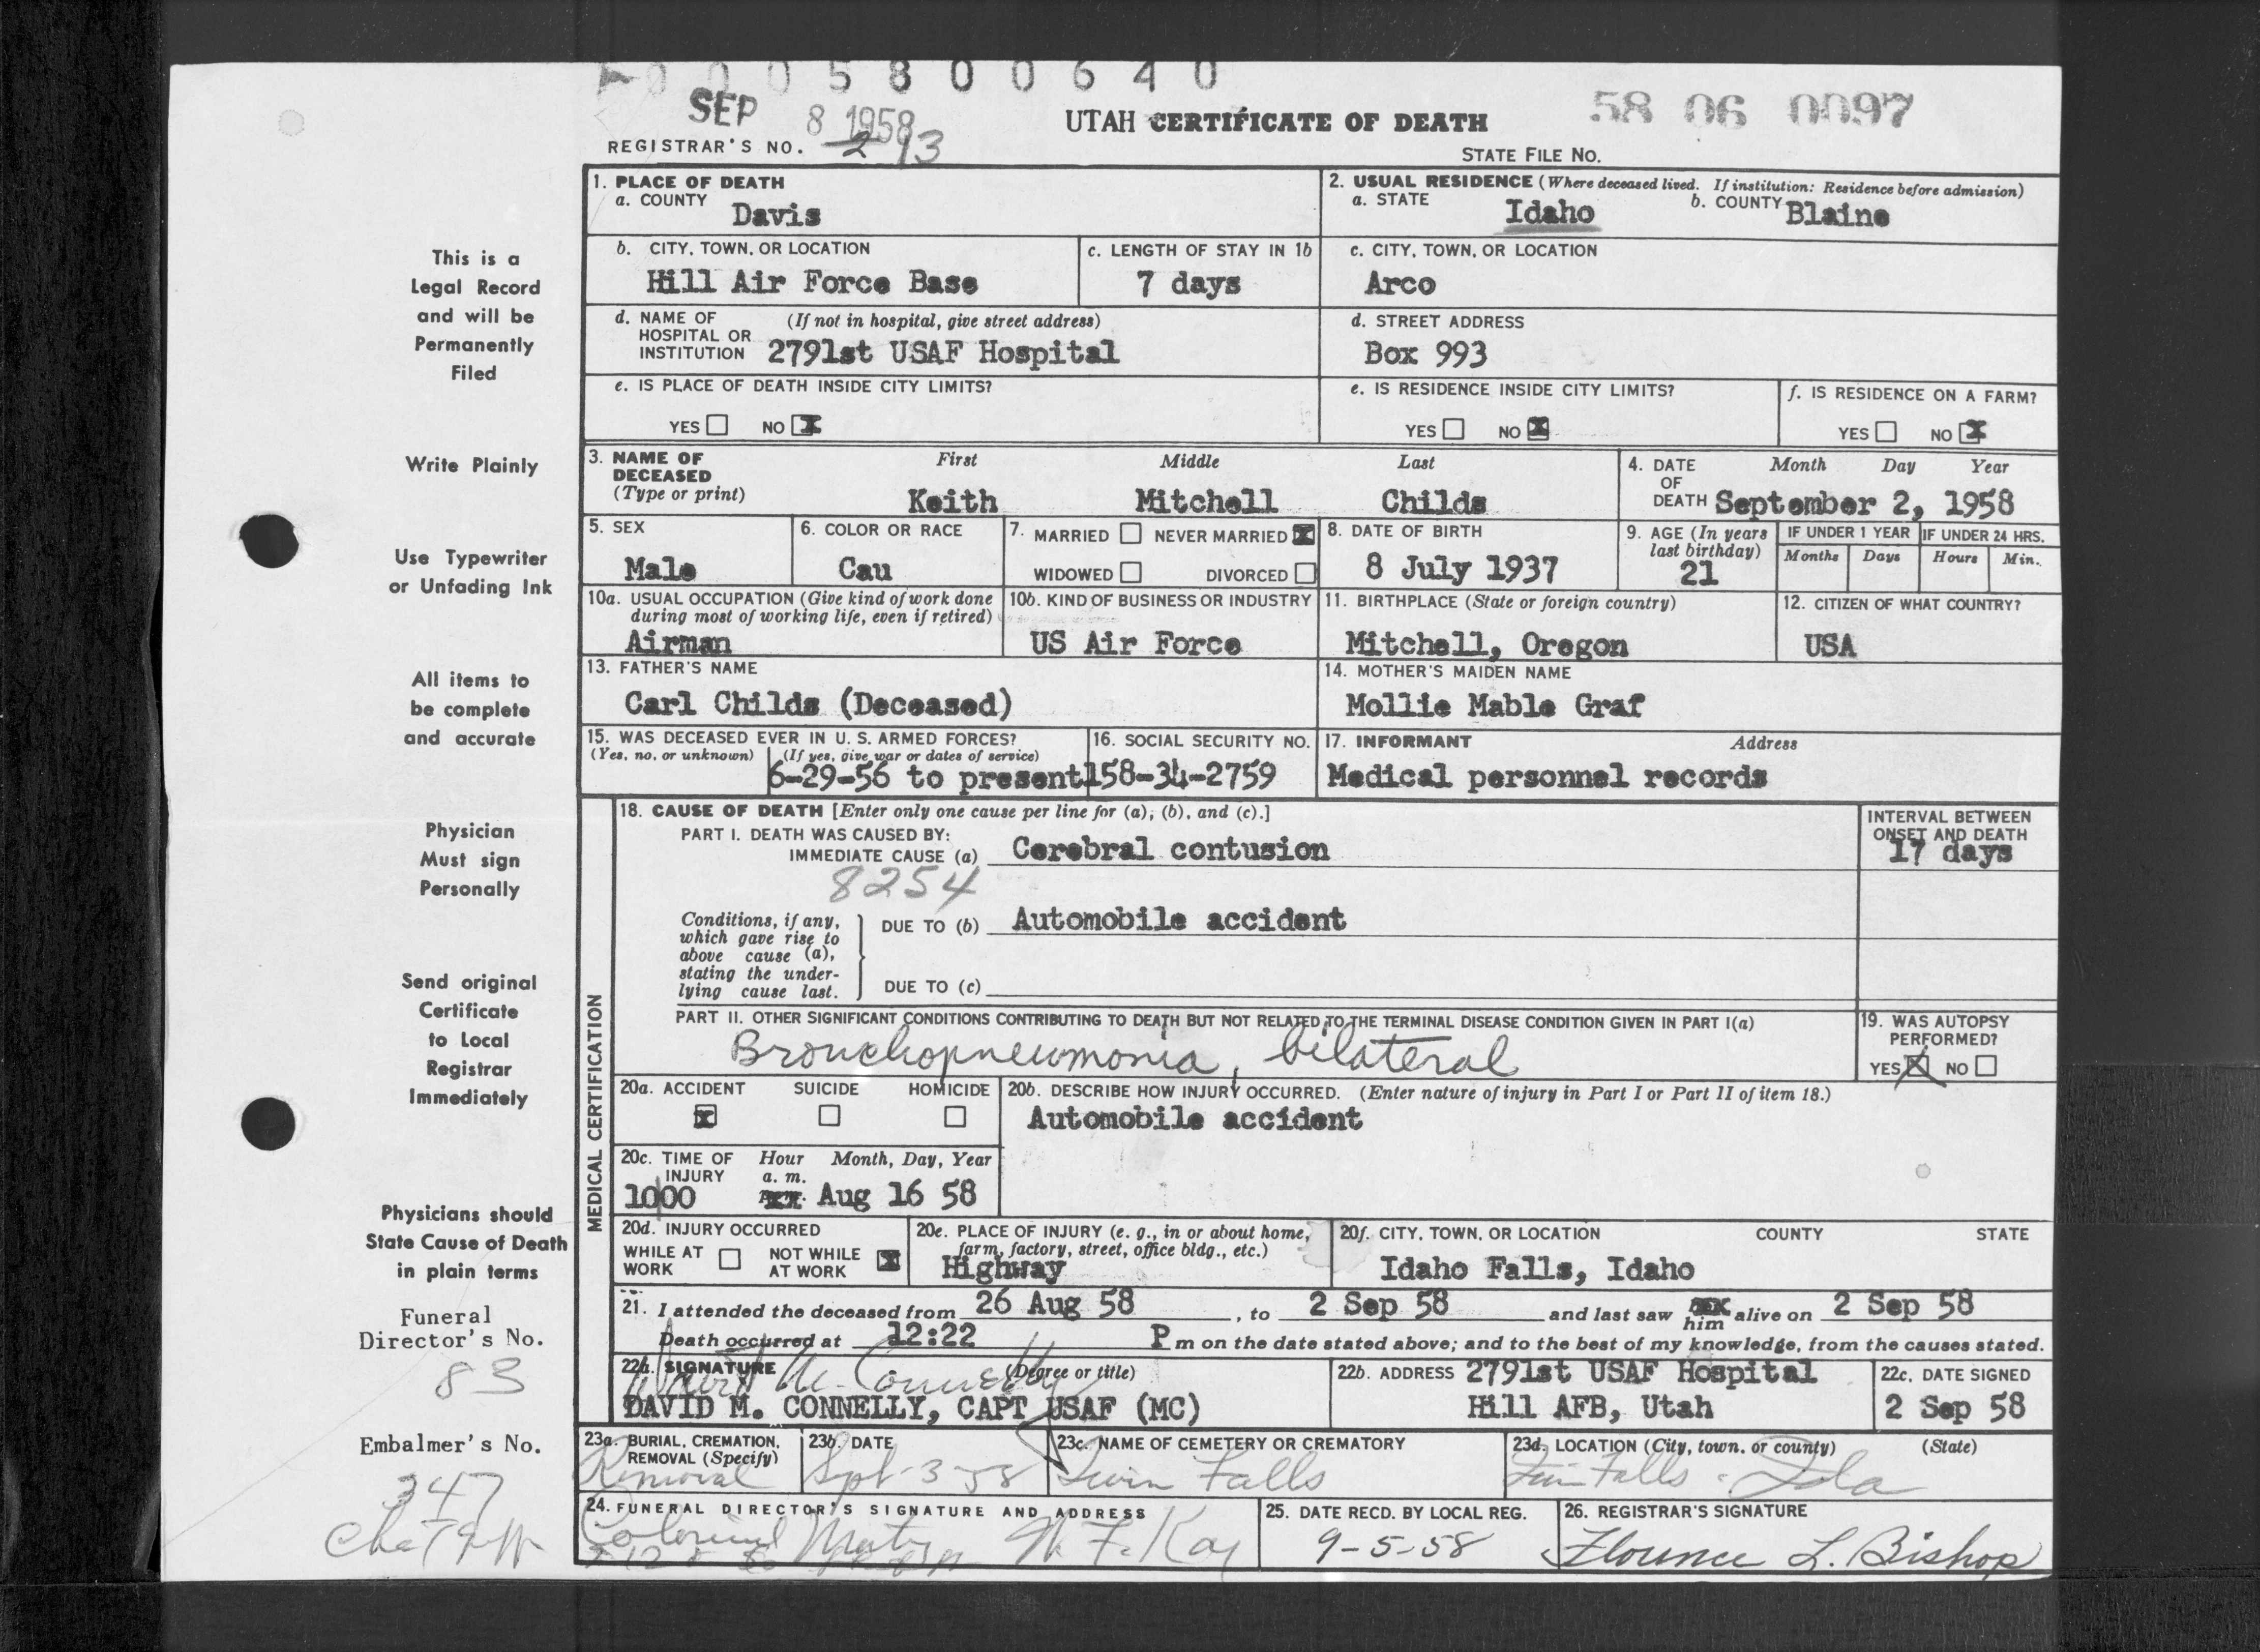 0 0 0 5 8 0 0 6 4 0
SEP 8 1958
UTAH CERTIFICATE OF DEATH
58 06 0097
REGISTRAR'S NO. 2 93
STATE FILE NO.
This is a
Legal Record
and will be
Permanently
Filed
Write Plainly
Use Typewriter
or Unfading Ink
All items to
be complete
and accurate
Physician
Must sign
Personally
Send original
Certificate
to Local
Registrar
Immediately
Physicians should
State Cause of Death
in plain terms
Funeral
Director's No.
83
Embalmer's No.
347
1. PLACE OF DEATH
a. COUNTY
Davis
2. USUAL RESIDENCE (Where deceased lived. If institution: Residence before admission)
a. STATE Idaho b. COUNTY Blaine
b. CITY, TOWN, OR LOCATION
Hill Air Force Base
c. LENGTH OF STAY IN 1b
7 days
c. CITY, TOWN, OR LOCATION
Arco
d. NAME OF (If not in hospital, give street address)
HOSPITAL OR
INSTITUTION 2791st USAF Hospital
d. STREET ADDRESS
Box 993
e. IS PLACE OF DEATH INSIDE CITY LIMITS?
YES NO X
e. IS RESIDENCE INSIDE CITY LIMITS?
YES NO X
f. IS RESIDENCE ON A FARM?
YES NO X
3. NAME OF
DECEASED
(Type or print)
First Middle Last
Keith Mitchell Childs
4. DATE Month Day Year
OF
DEATH September 2, 1958
5. SEX
Male
6. COLOR OR RACE
Cau
7. MARRIED NEVER MARRIED X
WIDOWED DIVORCED
8. DATE OF BIRTH
8 July 1937
9. AGE (In years
last birthday)
21
IF UNDER 1 YEAR
Months Days
IF UNDER 24 HRS.
Hours Min.
10a. USUAL OCCUPATION (Give kind of work done
during most of working life, even if retired)
Airman
10b. KIND OF BUSINESS OR INDUSTRY
US Air Force
11. BIRTHPLACE (State or foreign country)
Mitchell, Oregon
12. CITIZEN OF WHAT COUNTRY?
USA
13. FATHER'S NAME
Carl Childs (Deceased)
14. MOTHER'S MAIDEN NAME
Mollie Mable Graf
15. WAS DECEASED EVER IN U. S. ARMED FORCES?
(Yes, no, or unknown) (If yes, give war or dates of service)
6-29-56 to present
16. SOCIAL SECURITY NO.
158-34-2759
17. INFORMANT Address
Medical personnel records
MEDICAL CERTIFICATION
18. CAUSE OF DEATH [Enter only one cause per line for (a), (b), and (c).]
PART I. DEATH WAS CAUSED BY:
IMMEDIATE CAUSE (a) Cerebral contusion
8254
INTERVAL BETWEEN
ONSET AND DEATH
17 days
Conditions, if any,
which gave rise to
above cause (a),
stating the under-
lying cause last.
DUE TO (b) Automobile accident
DUE TO (c)
PART II. OTHER SIGNIFICANT CONDITIONS CONTRIBUTING TO DEATH BUT NOT RELATED TO THE TERMINAL DISEASE CONDITION GIVEN IN PART I(a)
Bronchopneumonia, bilateral
19. WAS AUTOPSY
PERFORMED?
YES X NO
20a. ACCIDENT SUICIDE HOMICIDE
X
20b. DESCRIBE HOW INJURY OCCURRED. (Enter nature of injury in Part I or Part II of item 18.)
Automobile accident
20c. TIME OF Hour Month, Day, Year
INJURY a. m.
1000 Aug 16 58
20d. INJURY OCCURRED
WHILE AT
WORK
NOT WHILE
AT WORK X
20e. PLACE OF INJURY (e. g., in or about home,
farm, factory, street, office bldg., etc.)
Highway
20f. CITY, TOWN, OR LOCATION COUNTY STATE
Idaho Falls, Idaho
21. I attended the deceased from 26 Aug 58, to 2 Sep 58 and last saw him alive on 2 Sep 58
Death occurred at 12:22 P m on the date stated above; and to the best of my knowledge, from the causes stated.
22a. SIGNATURE (Degree or title)
David M. Connelly
DAVID M. CONNELLY, CAPT USAF (MC)
22b. ADDRESS 2791st USAF Hospital
Hill AFB, Utah
22c. DATE SIGNED
2 Sep 58
23a. BURIAL, CREMATION,
REMOVAL (Specify)
Removal
23b. DATE
Sept-3-58
23c. NAME OF CEMETERY OR CREMATORY
Twin Falls
23d. LOCATION (City, town, or county) (State)
Twin Falls - Ida
24. FUNERAL DIRECTOR'S SIGNATURE AND ADDRESS
Colonial
25. DATE RECD. BY LOCAL REG.
9-5-58
26. REGISTRAR'S SIGNATURE
Florence L. Bishop